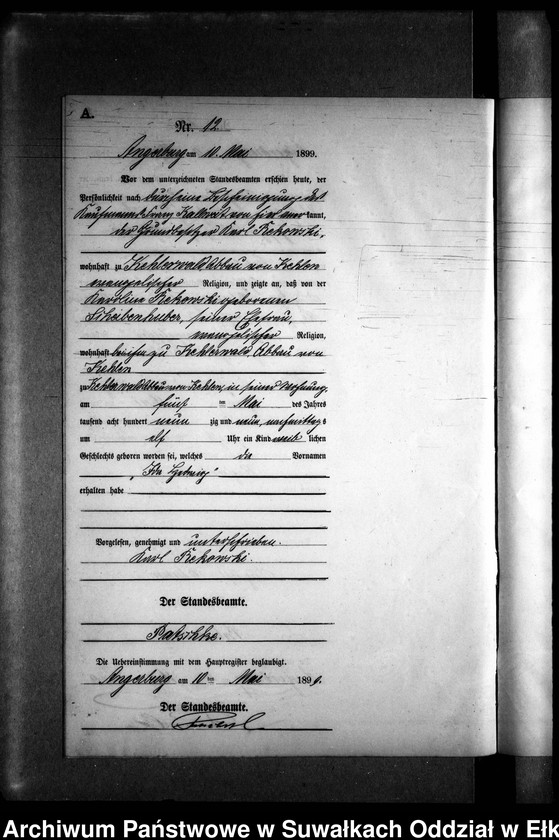 A.
Nr. 12.
Angerburg am 10. Mai 1899.
Vor dem unterzeichneten Standesbeamten erschien heute, der
Persönlichkeit nach durch eine Bescheinigung des
Kaufmanns Franz von hier anerkannt,
der Grundbesitzer Karl Rekowski,
wohnhaft zu Kehlerwald Abbau von Kehlen
evangelischer Religion, und zeigte an, daß von der
Karoline Rekowski geborenen
Scheibenhuber, seiner Ehefrau,
evangelischer Religion,
wohnhaft bei ihm zu Kehlerwald, Abbau von
Kehlen
zu Kehlerwald Abbau von Kehlen, in seiner Wohnung,
am fünf ten Mai des Jahres
tausend acht hundert neun zig und neun, nachmittags
um elf Uhr ein Kind weib lichen
Geschlechts geboren worden sei, welches die Vornamen
„Ida Hedwig“
erhalten habe
Vorgelesen, genehmigt und unterschrieben.
Karl Rekowski.
Der Standesbeamte.
Patschke.
Die Uebereinstimmung mit dem Hauptregister beglaubigt.
Angerburg am 10 ten Mai 1899.
Der Standesbeamte.
Archiwum Państwowe w Suwałkach Oddział w Ełk